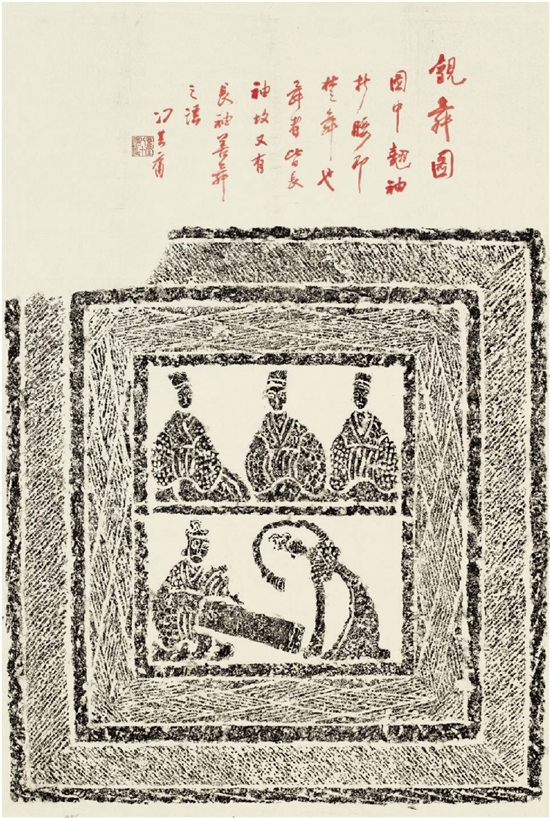 觀舞圖
圖中翹袖
折腰即
楚舞也
舞者皆長
袖故又有
長袖善舞
之語
冯其庸